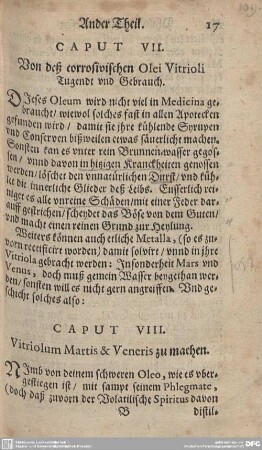 Ander Theil. 17
CAPUT VII.
Von deß corrosivischen Olei Vitrioli
Tugendt vnd Gebrauch.
DIeses Oleum wird nicht viel in Medicina ge-
braucht/ wiewol solches fast in allen Apotecken
gefunden wird/ damit sie ihre kühlende Syrupen
vnd Conserven bißweilen etwas säuerlicht machen.
Sonsten kan es vnter rein Brunnenwasser gegos-
sen/ vnnd davon in hitzigen Kranckheiten genossen
werden/ löschet den vnnatürlichen Durst/ vnd küh-
let die innerliche Glieder deß Leibs. Eusserlich rei-
niget es alle vnreine Schäden/ mit einer Feder dar-
auff gestrichen/ scheydet das Böse von dem Guten/
vnd macht einen reinen Grund zur Heylung.
Weiters können auch etliche Metalla, (so es zu-
vorn rectificirt worden) damit solvirt/ vnnd in ihre
Vitriola gebracht werden: Insonderheit Mars vnd
Venus, doch muß gemein Wasser beygethan wer-
den/ sonsten will es nicht gern angreiffen. Vnd ge-
schicht solches also:
CAPUT VIII.
Vitriolum Martis & Veneris zu machen.
NImb von deinem schweren Oleo, wie es vber-
gestiegen ist/ mit sampt seinem Phlegmate,
(doch daß zuvorn der Volatilische Spiritus davon
B distil-